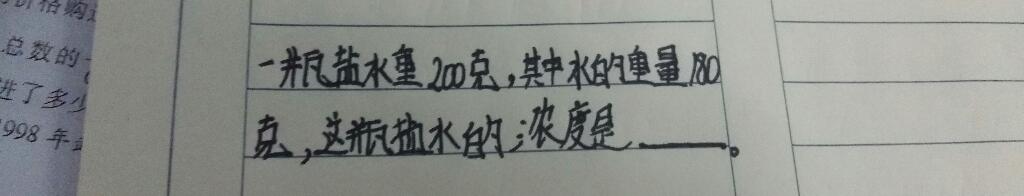 价格购
总数的
进了多少
998年
一瓶盐水重200克,其中水的重量180
克,这瓶盐水的浓度是____。